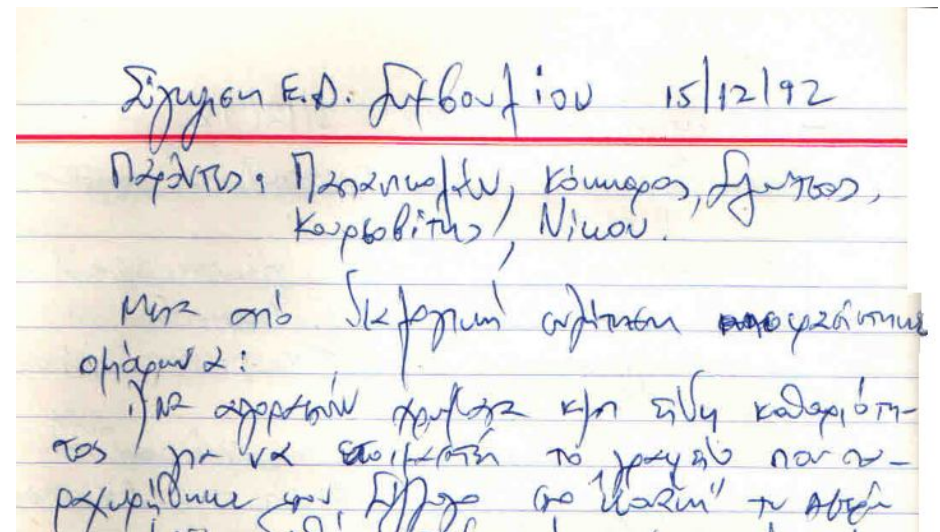 Σύγκληση Ε.Δ. Συμβουλίου 15/12/92
Παρόντες: Παπανικολάου, Κόκκορος,
Κουρσοβίτης, Νίκου.
Μετά από διαλογική συζήτηση αποφασίστηκε
ομόφωνα:
1) Να αγοραστούν χρώματα και είδη καθαριότη-
τος για να ετοιμαστή το γραφείο που πα-
ραχωρήθηκε στον Σύλλογο στο